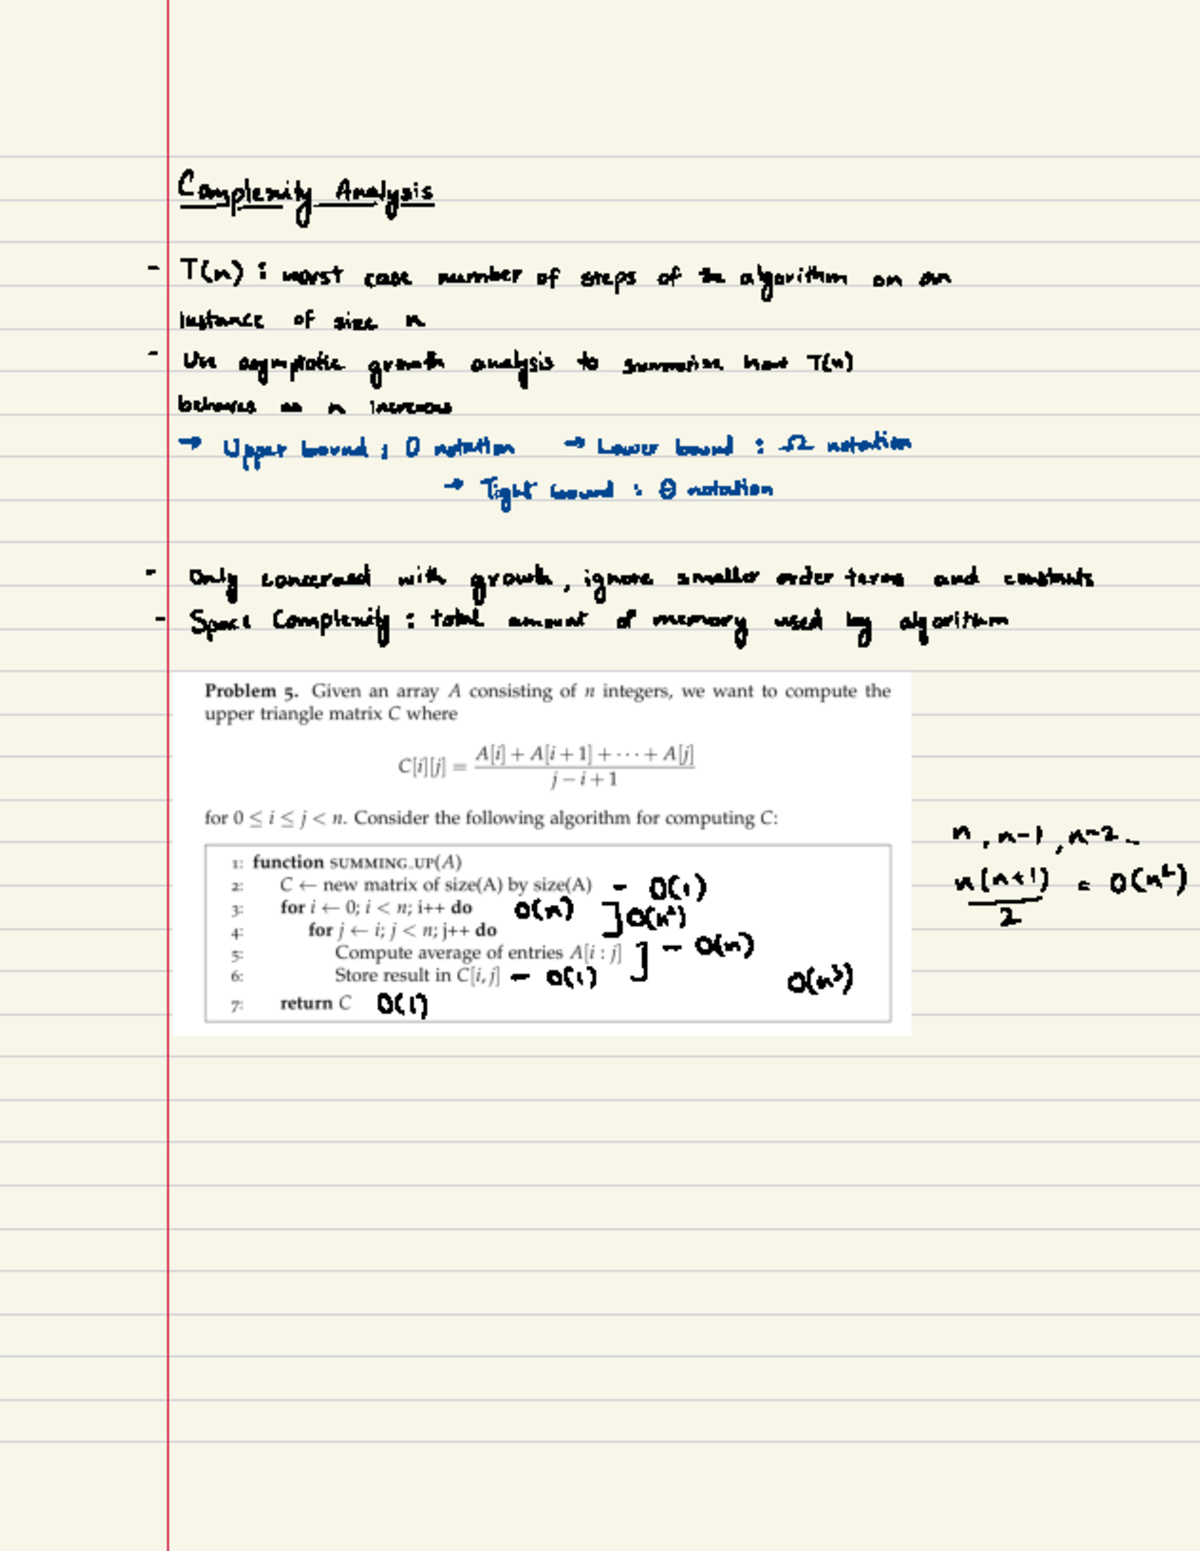 Complexity Analysis
- T(n) : worst case number of steps of the algorithm on an
instance of size n
- Use asymptotic growth analysis to summarise how T(n)
behaves as n increases
→ Upper bound : O notation → Lower bound : Ω notation
→ Tight bound : Θ notation
- Only concerned with growth, ignore smaller order terms and constants
- Space Complexity : total amount of memory used by algorithm
Problem 5. Given an array A consisting of n integers, we want to compute the
upper triangle matrix C where
C[i][j] = (A[i] + A[i+1] + ··· + A[j]) / (j − i + 1)
for 0 ≤ i ≤ j < n. Consider the following algorithm for computing C:
n, n-1, n-2..
n(n+1)/2 = O(n²)
1: function SUMMING_UP(A)
2: C ← new matrix of size(A) by size(A) - O(1)
3: for i ← 0; i < n; i++ do O(n) ] O(n²)
4: for j ← i; j < n; j++ do
5: Compute average of entries A[i : j] ] - O(n)
6: Store result in C[i, j] - O(1)
O(n³)
7: return C O(1)